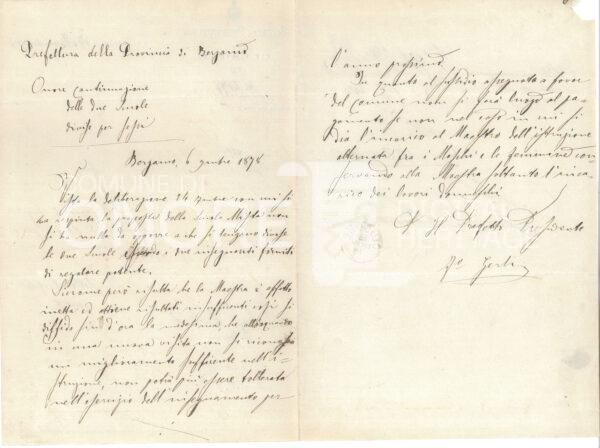 Prefettura della Provincia di Bergamo
Onore continuazione
delle due Scuole
divise per sessi
Bergamo, 6 9mbre 1878
Vista la deliberazione 24 9mbre con cui si
ha respinta la proposta della Scuola Mista non
si ha nulla da opporre a che si tengano divise
le due Scuole essendo i due insegnanti forniti
di regolare patente.
Siccome però risulta che la Maestra è affatto
inetta ed ottiene risultati insufficienti così si
diffida sin d'ora la medesima, che allorquando
in una nuova visita non si riconoscesse
un miglioramento sufficente nell'i-
struzione, non potrà più essere tollerata
nell'esercizio dell'insegnamento per
l'anno prossimo.
In quanto al sussidio assegnato a favore
del Comune non si farà luogo al pa-
gamento se non nel caso in cui si
dia l'incarico al Maestro dell'istruzione
alternata fra i Maschi e le femmine con-
servando alla Maestra soltanto l'inca-
rico dei lavori donneschi
Il Prefetto Presidente